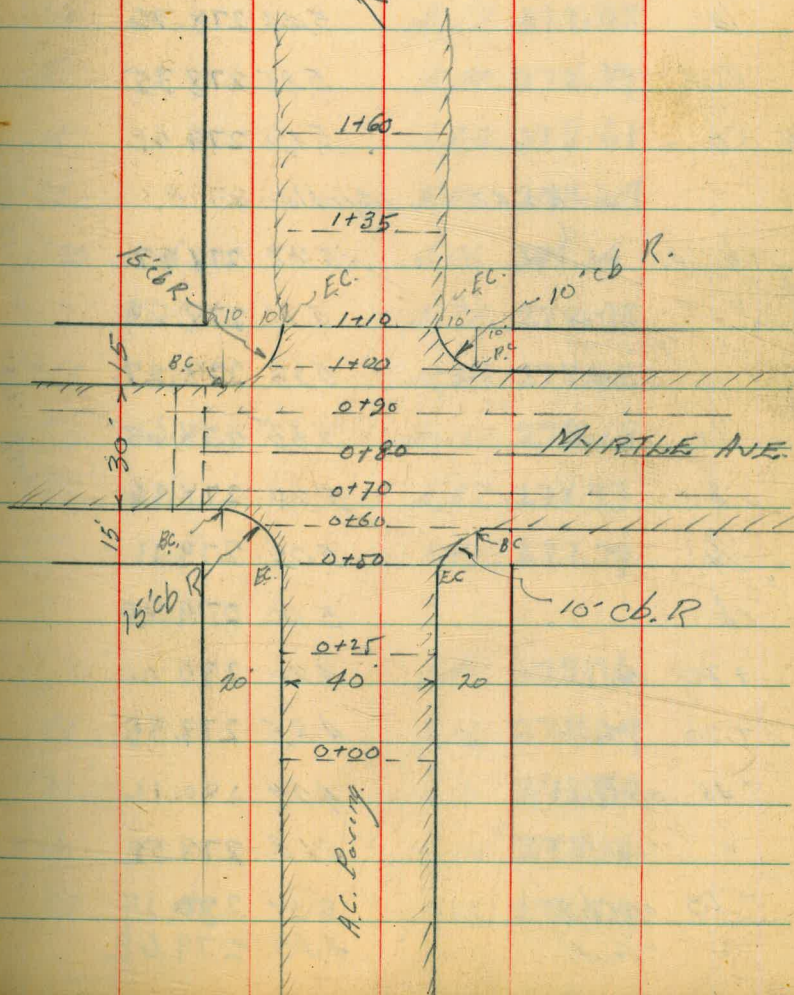 1+60
1+35
15' cb R.
E.C.
E.C.
10' cb R.
10 10'
1+10
10' 10'
15
B.C.
1+00
B.C
0+90
30'
0+80
MYRTLE AVE.
0+70
15'
B.C.
0+60
BC
E.C.
0+50
E.C
15' cb R
10' cb. R
0+25
20'
40'
20
0+00
A.C. Paving